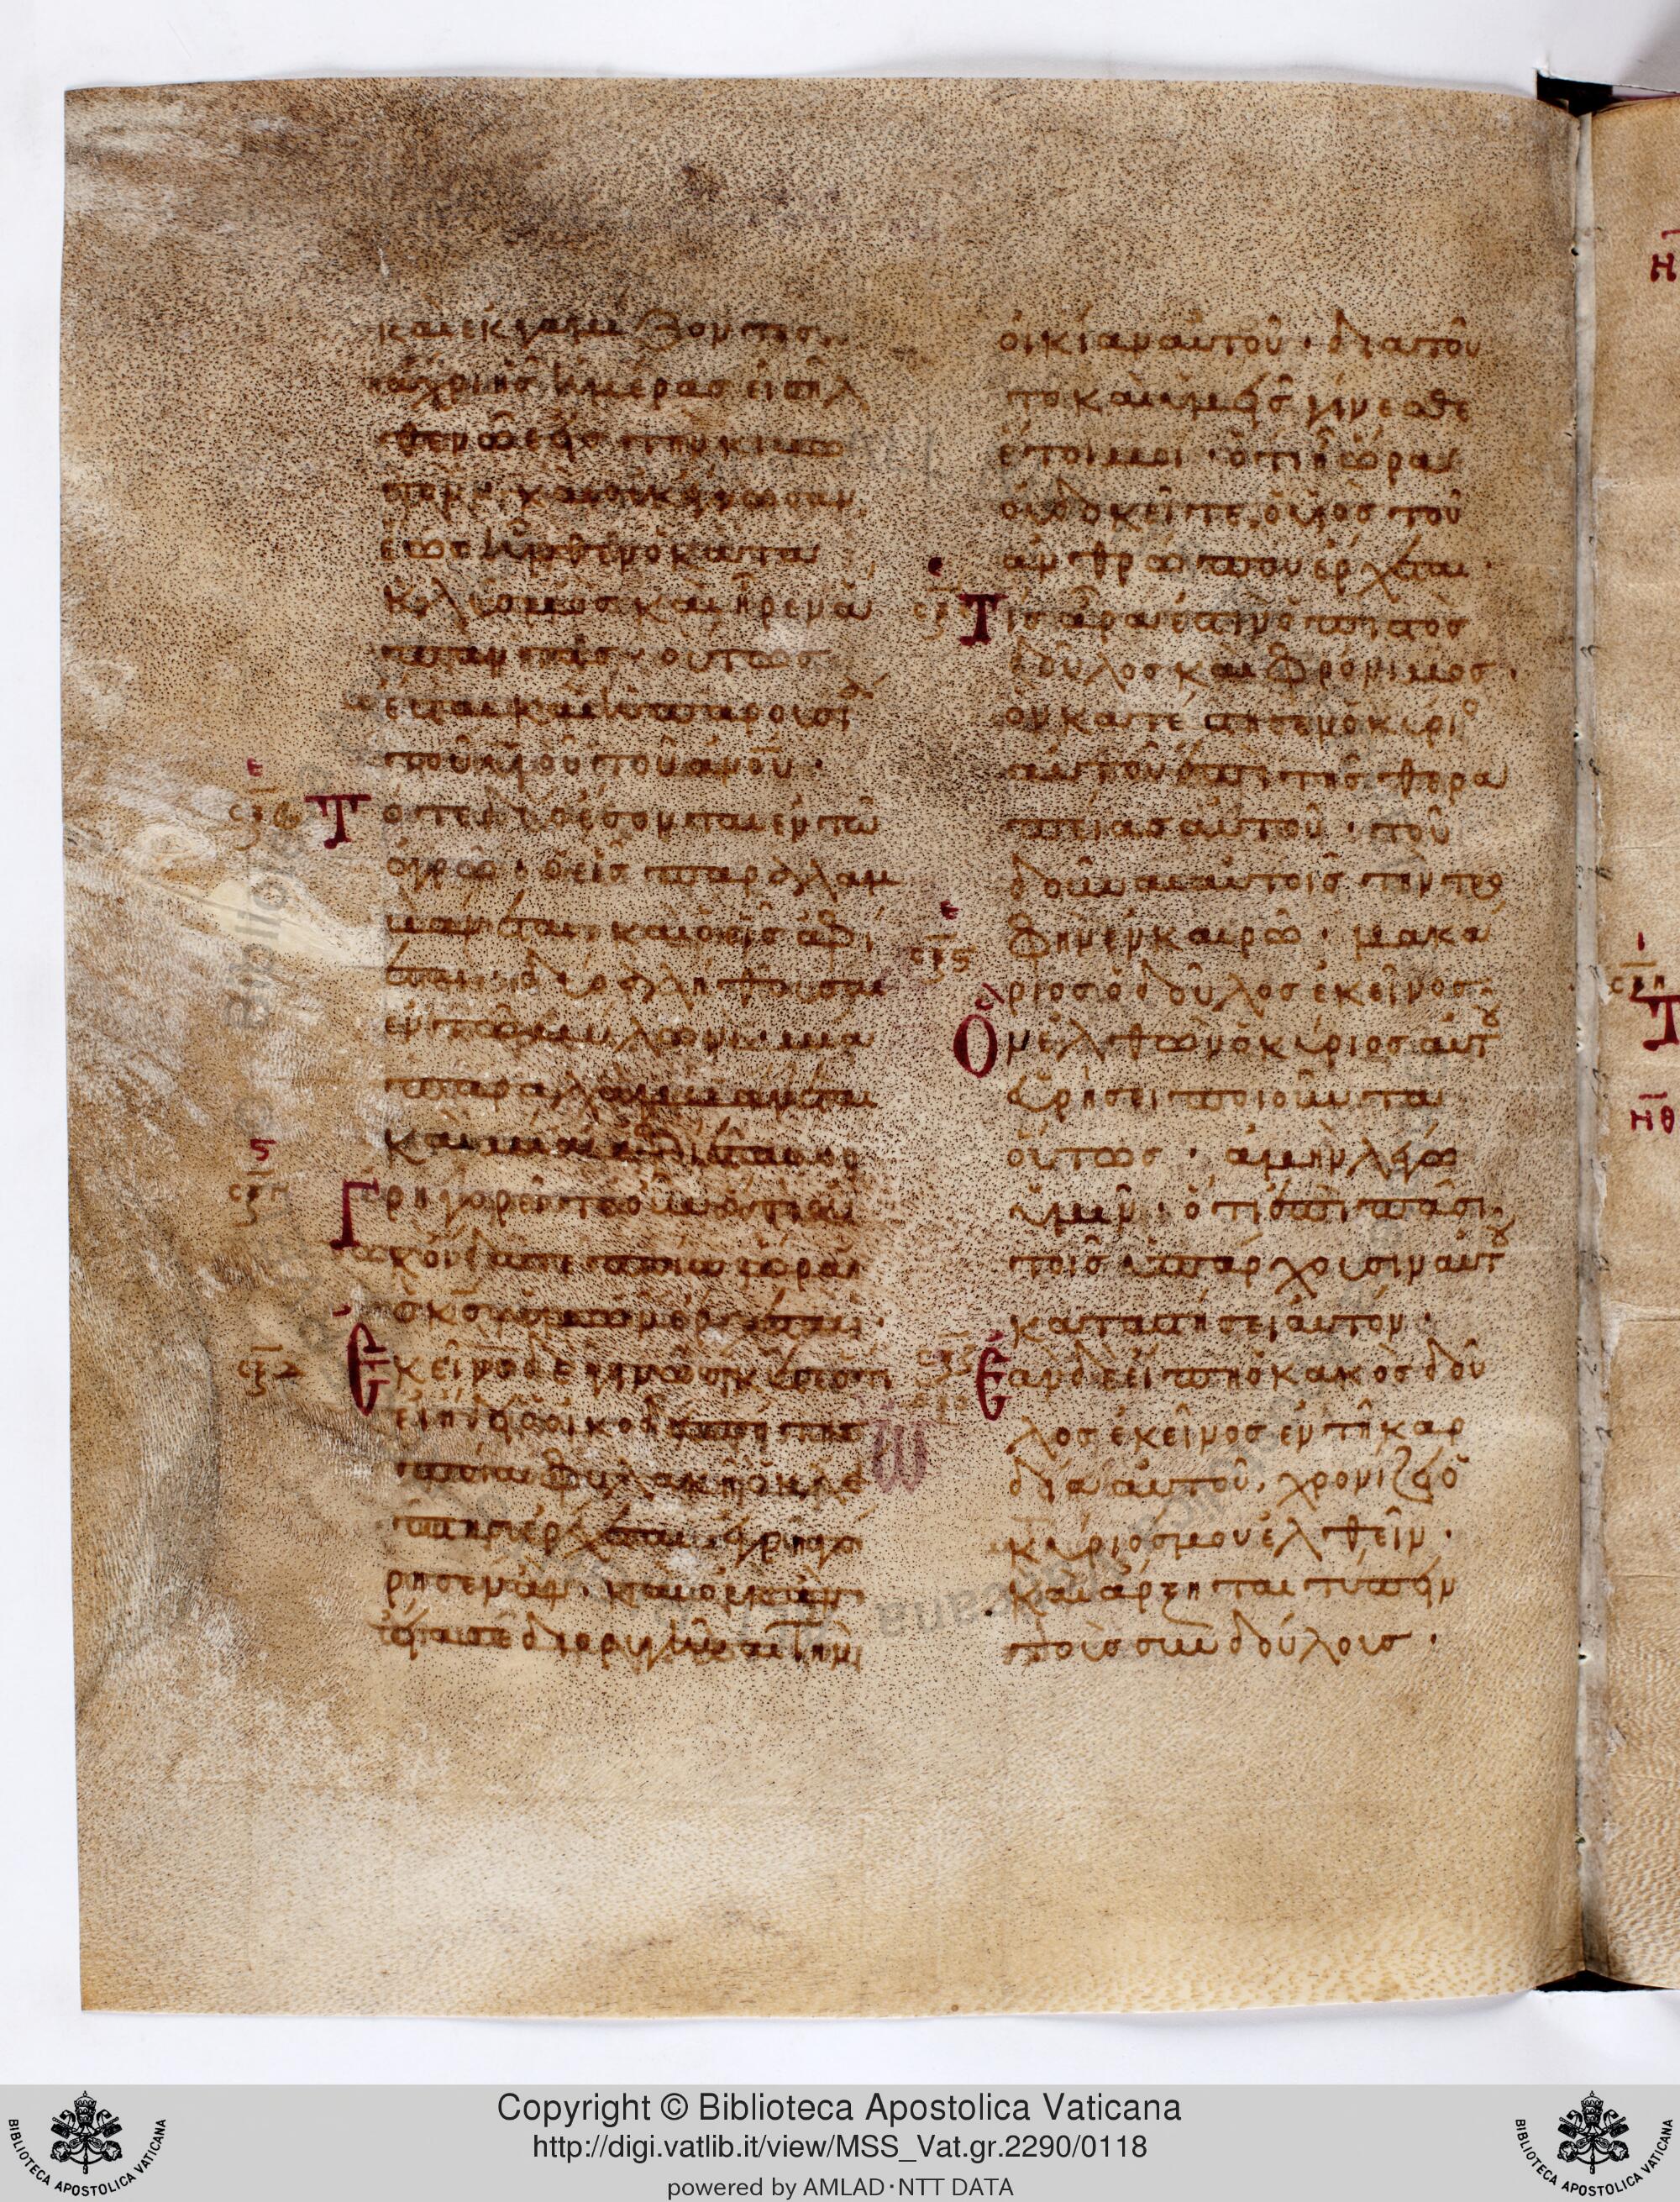 καὶ ἐκγαμίζοντες
ἄχρι ἧς ἡμέρας εἰσῆλ
θεν νῶε εἰς τὴν κιβω
τόν· καὶ οὐκ ἔγνωσαν
ἕως ἦλθεν ὁ κατα
κλυσμὸς καὶ ἦρεν ἅ
παντας· οὕτως
ἔσται καὶ ἡ παρουσί
τοῦ υἱοῦ τοῦ ἀνου·
Τότε δύο ἔσονται ἐν τῶ
ἀγρῶ· ὁ εἷς παραλαμ
βάνεται, καὶ ὁ εἷς ἀφί
εται· δύο ἀλήθουσαι
ἐν τῶ μύλωνι· μία
παραλαμβάνεται
καὶ μία ἀφίεται·
Γρηγορεῖτε οὖν ὅτι οὐ
κ οἴδατε ποία ὥρα
ὁ κς ὑμῶν ἔρχεται·
Ἐκεῖνο δὲ γινώσκετε ὅτι
εἰ ἤδει ὁ οἰκοδεσπότης
ποία φυλακῆ ὁ κλέ
πτης ἔρχεται ἐγρηγό
ρησεν ἄν· καὶ οὐκ ἂν
διορυγῆναι τὴν
οἰκίαν αὐτοῦ· διατοῦ
το καὶ ὑμεῖς γίνεσθε
ἕτοιμοι· ὅτι ἧ ὥρα
οὐ δοκεῖτε, ὁ υἱὸς τοῦ
ἀνθρώπου ἔρχεται·
Τίς ἄρα ἐστὶν ὁ πιστὸς
δοῦλος καὶ φρόνιμος·
ὃν κατέστησεν ὁ κύριο
αὐτοῦ ἐπὶ τῆς θερα
πείας αὐτοῦ· τοῦ
δοῦναι αὐτοῖς τὴν τρο
φὴν ἐν καιρῶ· μακά
ριος ὁ δοῦλος ἐκεῖνος
Ὃν ἐλθὼν ὁ κύριος αὐτου
εὑρήσει ποιοῦντα
οὕτως· ἀμὴν λέγω
ὑμῖν· ὅτι ἐπὶ πᾶσι
τοῖς ὑπάρχουσιν αὐτου
καταστήσει αὐτόν·
Ἐὰν δὲ εἴπη ὁ κακὸς δοῦ
λος ἐκεῖνος ἐν τῆ καρ
δία αὐτοῦ, χρονίζει ὁ
κύριός μου ἐλθεῖν·
καὶ ἄρξηται τύπτειν
τοὺς συνδούλους·
Copyright © Biblioteca Apostolica Vaticana
http://digi.vatlib.it/view/MSS_Vat.gr.2290/0118
powered by AMLAD·NTT DATA
BIBLIOTECA APOSTOLICA VATICANA
BIBLIOTECA APOSTOLICA VATICANA